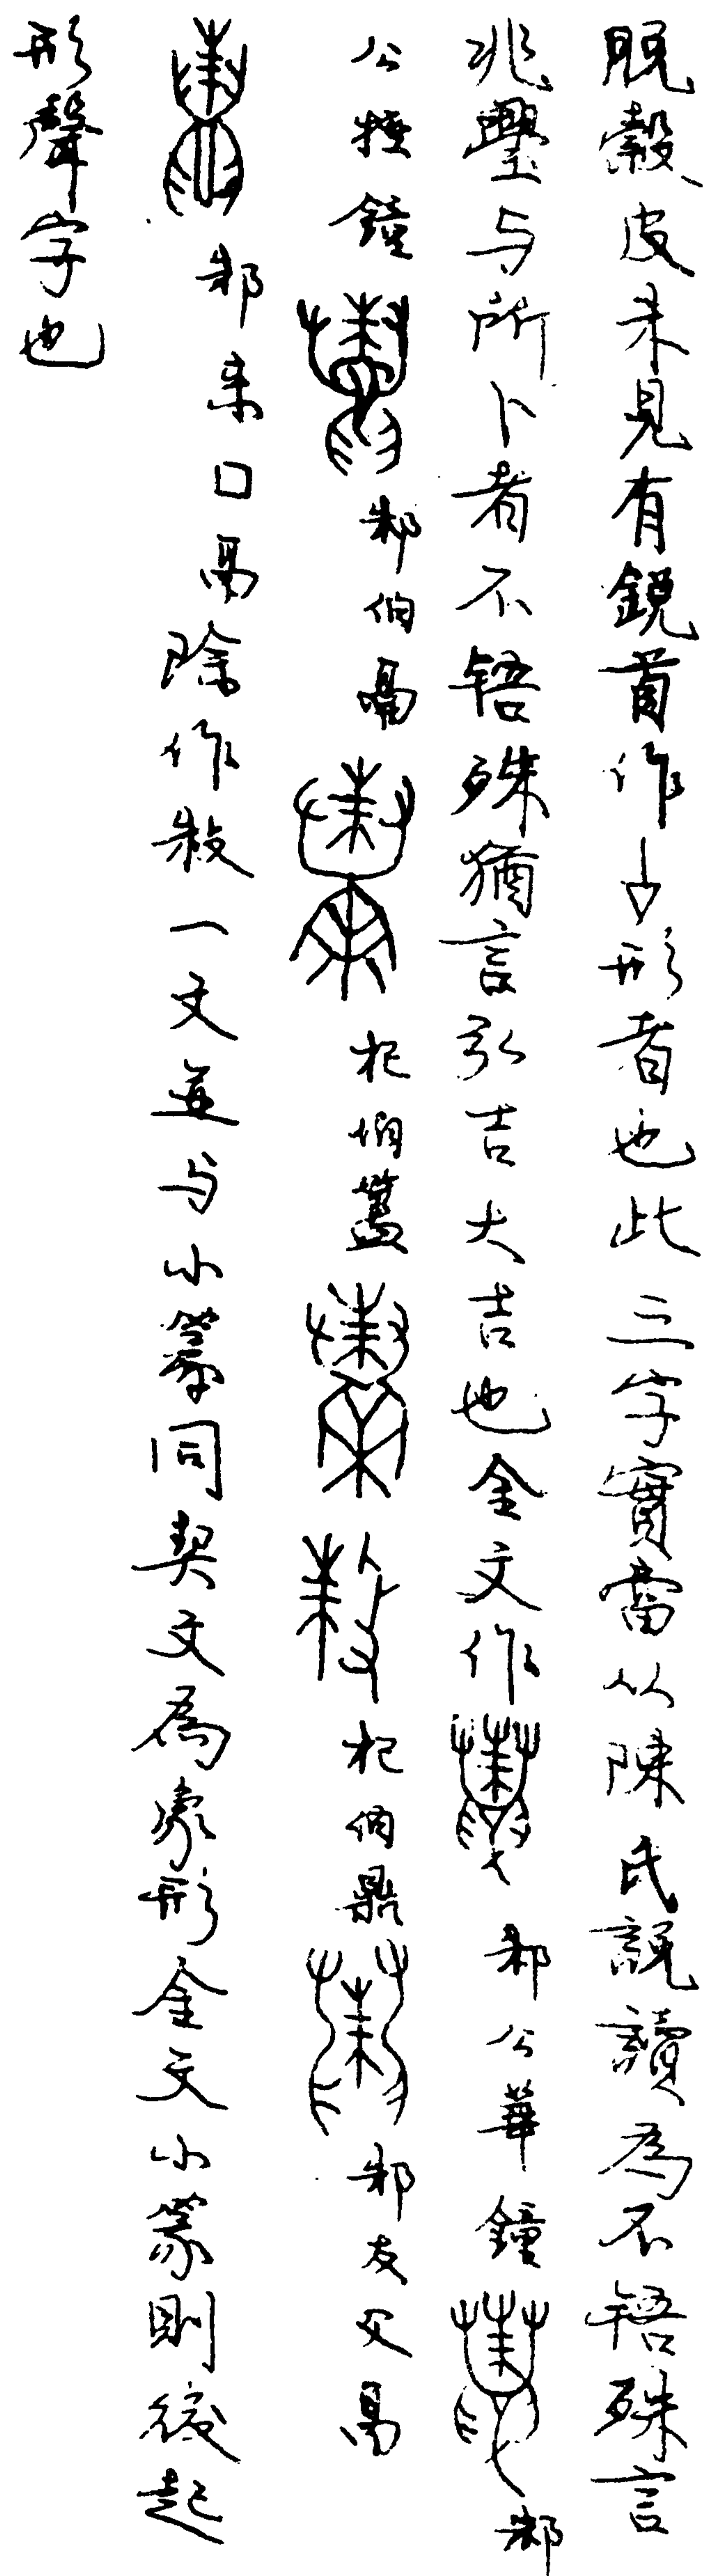 脫穀皮未見有銳首作形者也此三字實當从陳氏說讀為不牾殊言
兆璺与所卜者不牾殊猶言弘吉大吉也金文作邾公華鐘邾
公牼鐘邾伯鬲杞伯簋杞伯鼎邾友父鬲
邾來囗鬲除作𥹝一文並与小篆同契文為象形金文小篆則後起
形聲字也